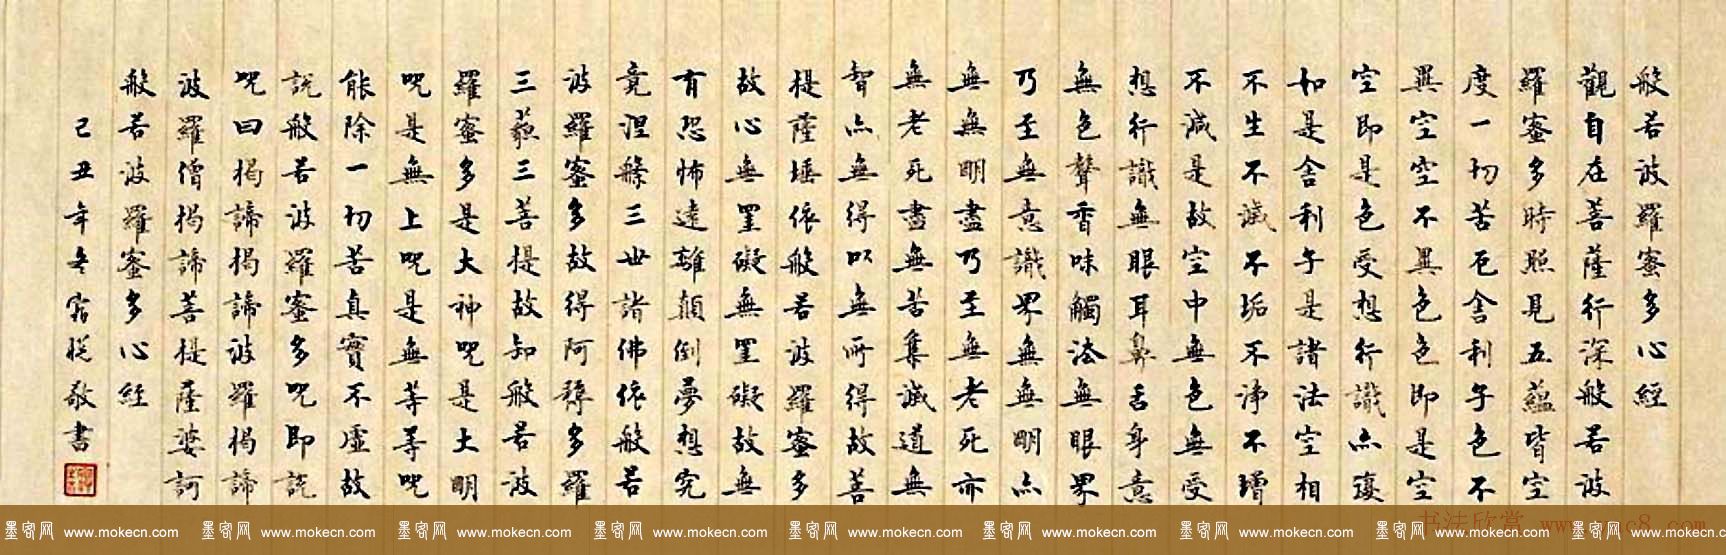 般若波羅蜜多心經
觀自在菩薩行深般若波
羅蜜多時照見五蘊皆空
度一切苦厄舍利子色不
異空空不異色色即是空
空即是色受想行識亦復
如是舍利子是諸法空相
不生不滅不垢不淨不增
不減是故空中無色無受
想行識無眼耳鼻舌身意
無色聲香味觸法無眼界
乃至無意識界無無明亦
無無明盡乃至無老死亦
無老死盡無苦集滅道無
智亦無得以無所得故菩
提薩埵依般若波羅蜜多
故心無罣礙無罣礙故無
有恐怖遠離顛倒夢想究
竟涅槃三世諸佛依般若
波羅蜜多故得阿耨多羅
三藐三菩提故知般若波
羅蜜多是大神咒是大明
咒是無上咒是無等等咒
能除一切苦真實不虛故
說般若波羅蜜多咒即說
咒曰揭諦揭諦波羅揭諦
波羅僧揭諦菩提薩婆訶
般若波羅蜜多心經
己丑年冬敬書
墨客网 www.mokecn.com 墨客网 www.mokecn.com 墨客网 www.mokecn.com 墨客网 www.mokecn.com 墨客网 www.mokecn.com 墨客网 www.mokecn.com 墨客网 www.mokecn.com 墨客网 www.mokecn.com 墨客网 www.mokecn.co
书法欣赏